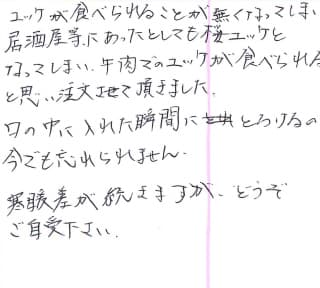 ユッケが食べられることが無くなってしまい
居酒屋等にあったとしても桜ユッケと
なってしまい、牛肉でのユッケが食べられる
と思い注文させて頂きました。
口の中に入れた瞬間にとろけるの
今でも忘れられません。
寒暖差が続きますが、どうぞ
ご自愛下さい。